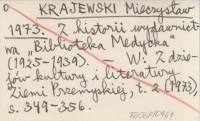 KRAJEWSKI Mieczysław
1973. Z historii wydawnict-
wa „Biblioteka Medycka"
(1925-1939). — W: Z dzie-
jów kultury i literatury
Ziemi Przemyskiej, t. 2 (1973),
s. 349-356.